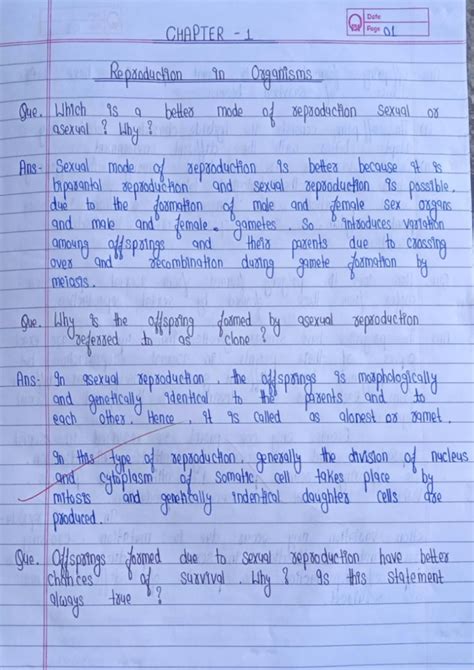 Date
Page 01
CHAPTER - 1
Reproduction in Organisms
Que. Which is a better mode of reproduction sexual or
asexual ? Why ?
Ans- Sexual mode of reproduction is better because it is
biparantal reproduction and sexual reproduction is possible
due to the formation of male and female sex organs
and male and female gametes. So introduces variation
amoung offsprings and their parents due to crossing
over and recombination during gamete formation by
meiasis.
Que. Why is the offspring formed by asexual reproduction
referred to as clone ?
Ans- In asexual reproduction, the offsprings is morphologically
and genetically identical to the parents and to
each other. Hence, it is called as alonest or ramet.
In this type of reproduction, generally the division of nucleus
and cytoplasm of somatic cell takes place by
mitosis and genetically indentical daughter cells are
produced.
Que. Offsprings formed due to sexual reproduction have better
chances of survival. Why ? Is this statement
always true ?